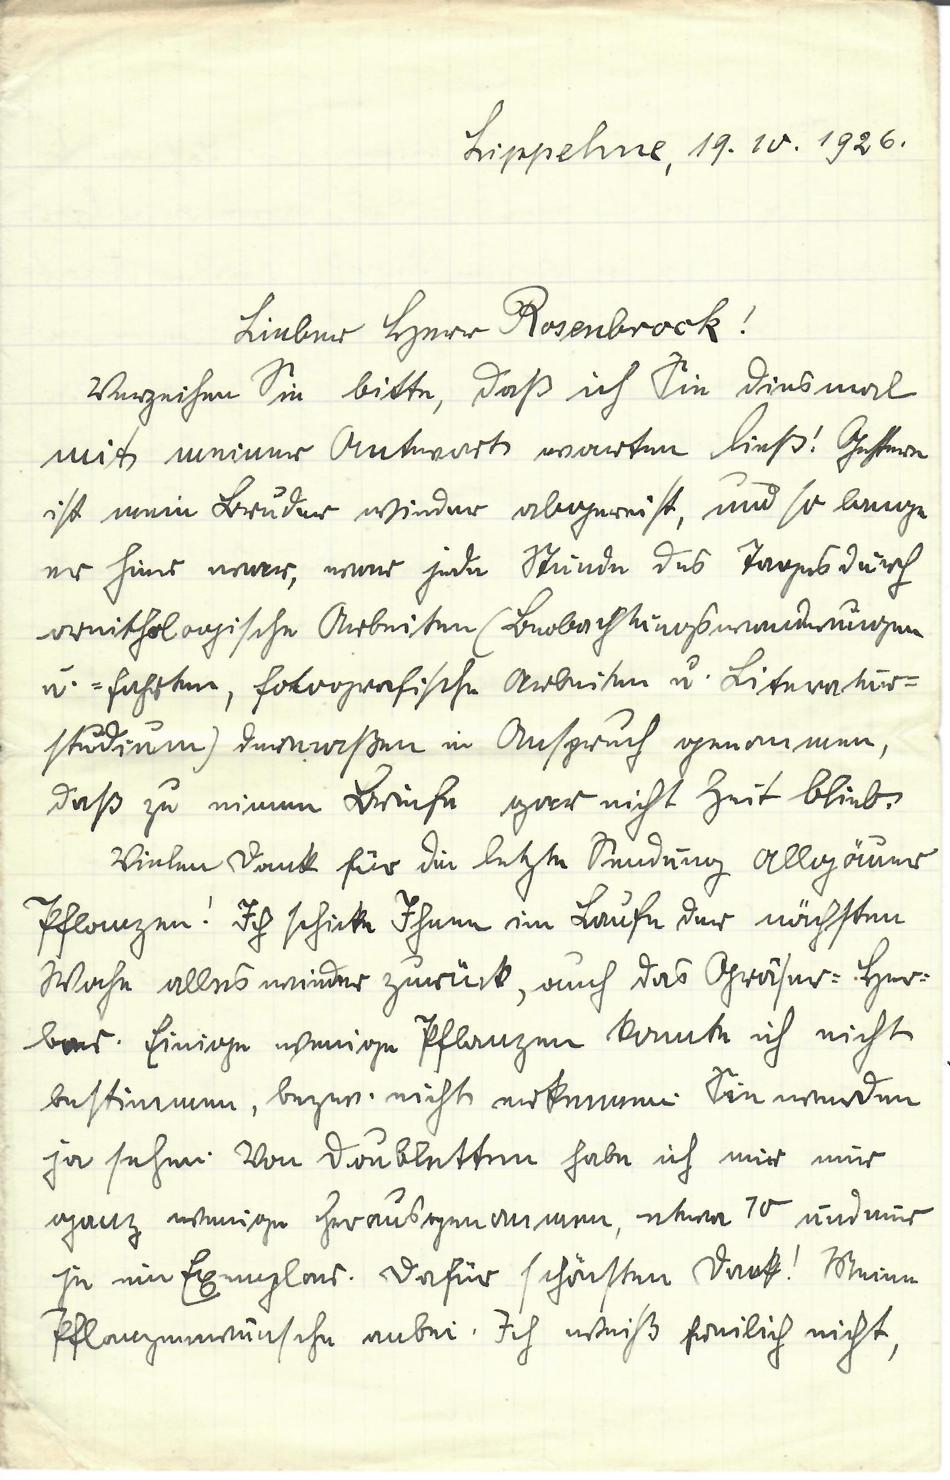 Lippehne, 19. 10. 1926.
Lieber Herr Rosenbrock!
Verzeihen Sie bitte, daß ich Sie diesmal
mit meiner Antwort warten ließ! Gestern
ist mein Bruder wieder abgereist, und so lange
er hier war, war jede Stunde des Tages durch
ornithologische Arbeiten (Beobachtungswanderungen
u. =fahrten, fotografische Arbeiten u. Literatur=
studium) dermaßen in Anspruch genommen,
daß zu einem Briefe gar nicht Zeit blieb.
Vielen Dank für die letzte Sendung Allgäuer
Pflanzen! Ich schicke Ihnen im Laufe der nächsten
Woche alles wieder zurück, auch das Gräser= Her=
bar. Einige wenige Pflanzen konnte ich nicht
bestimmen, bezw. nicht erkennen. Sie werden
ja sehen. Von Doubletten habe ich mir nur
ganz wenige herausgenommen, etwa 10 und nur
je ein Exemplar. Dafür schönsten Dank! Meine
Pflanzenwünsche anbei. Ich weiß freilich nicht,